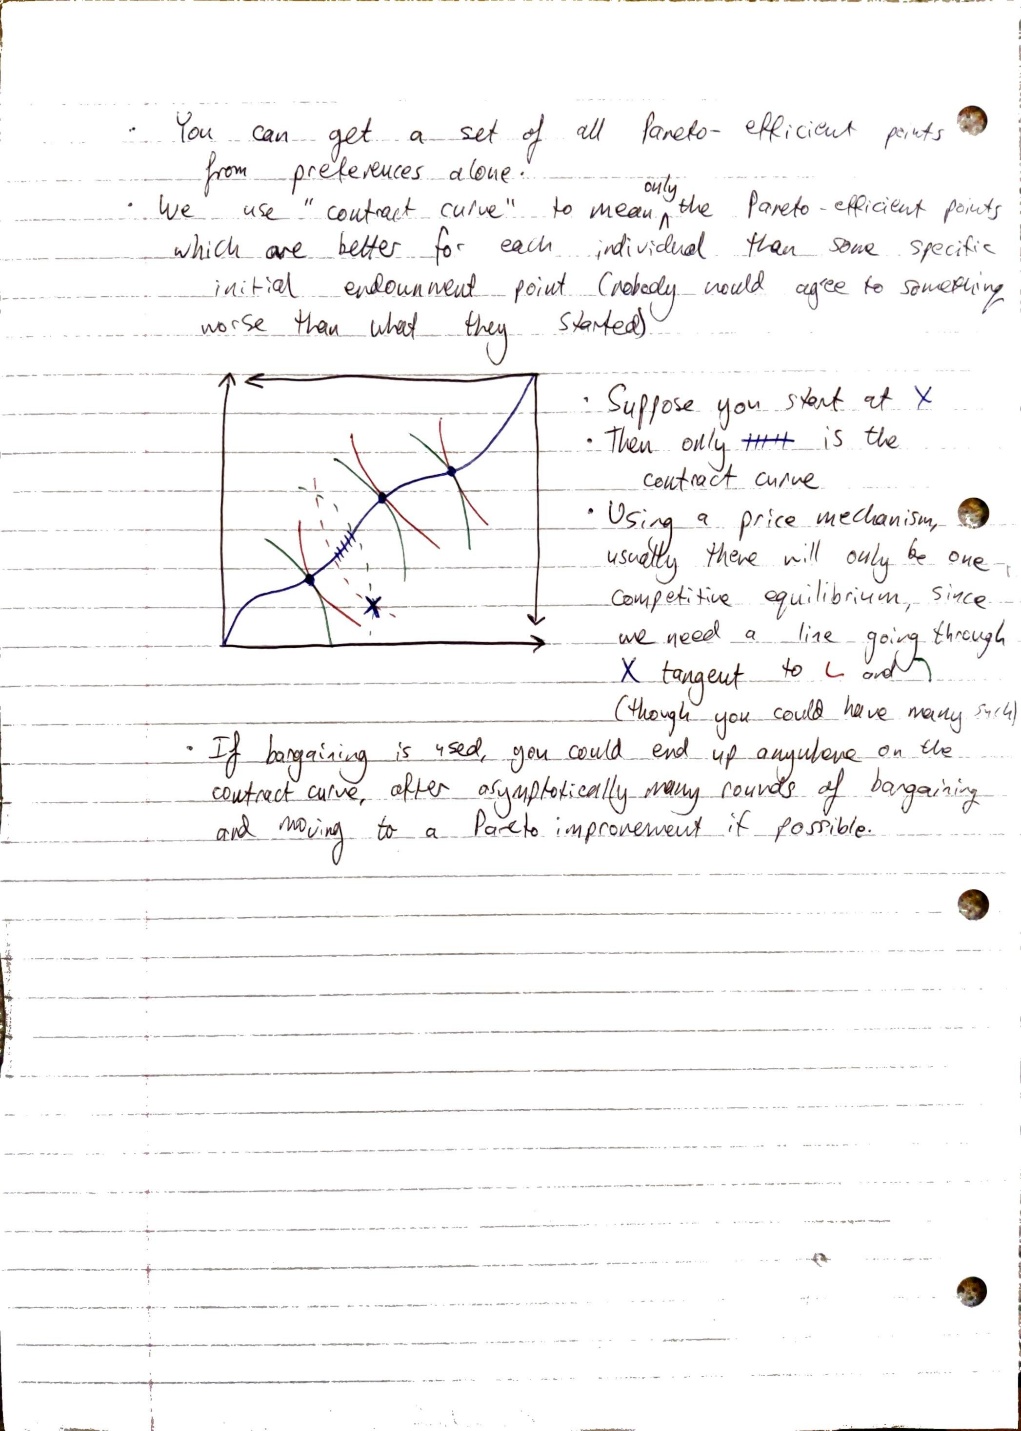 · You can get a set of all Pareto-efficient points
from preferences alone.
· We use "contract curve" to mean only the Pareto-efficient points
which are better for each individual than some specific
initial endownment point (nobody would agree to something
worse than what they started)
· Suppose you start at X
· Then only is the
contract curve
· Using a price mechanism,
usually there will only be one
competitive equilibrium, since
we need a line going through
X tangent to and
(though you could have many such)
· If bargaining is used, you could end up anywhere on the
contract curve, after asymptotically many rounds of bargaining
and moving to a Pareto improvement if possible.